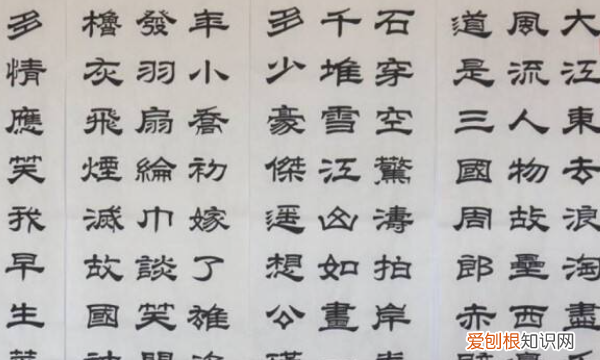 大江東去浪淘盡
風流人物故壘西
道是三國周郎赤
石穿空驚濤拍岸
千堆雪江山如畫
多少豪傑遥想公
年小喬初嫁了雄
發羽扇綸巾談笑
櫓灰飛煙滅故國
多情應笑我早生
爱刨根知识网